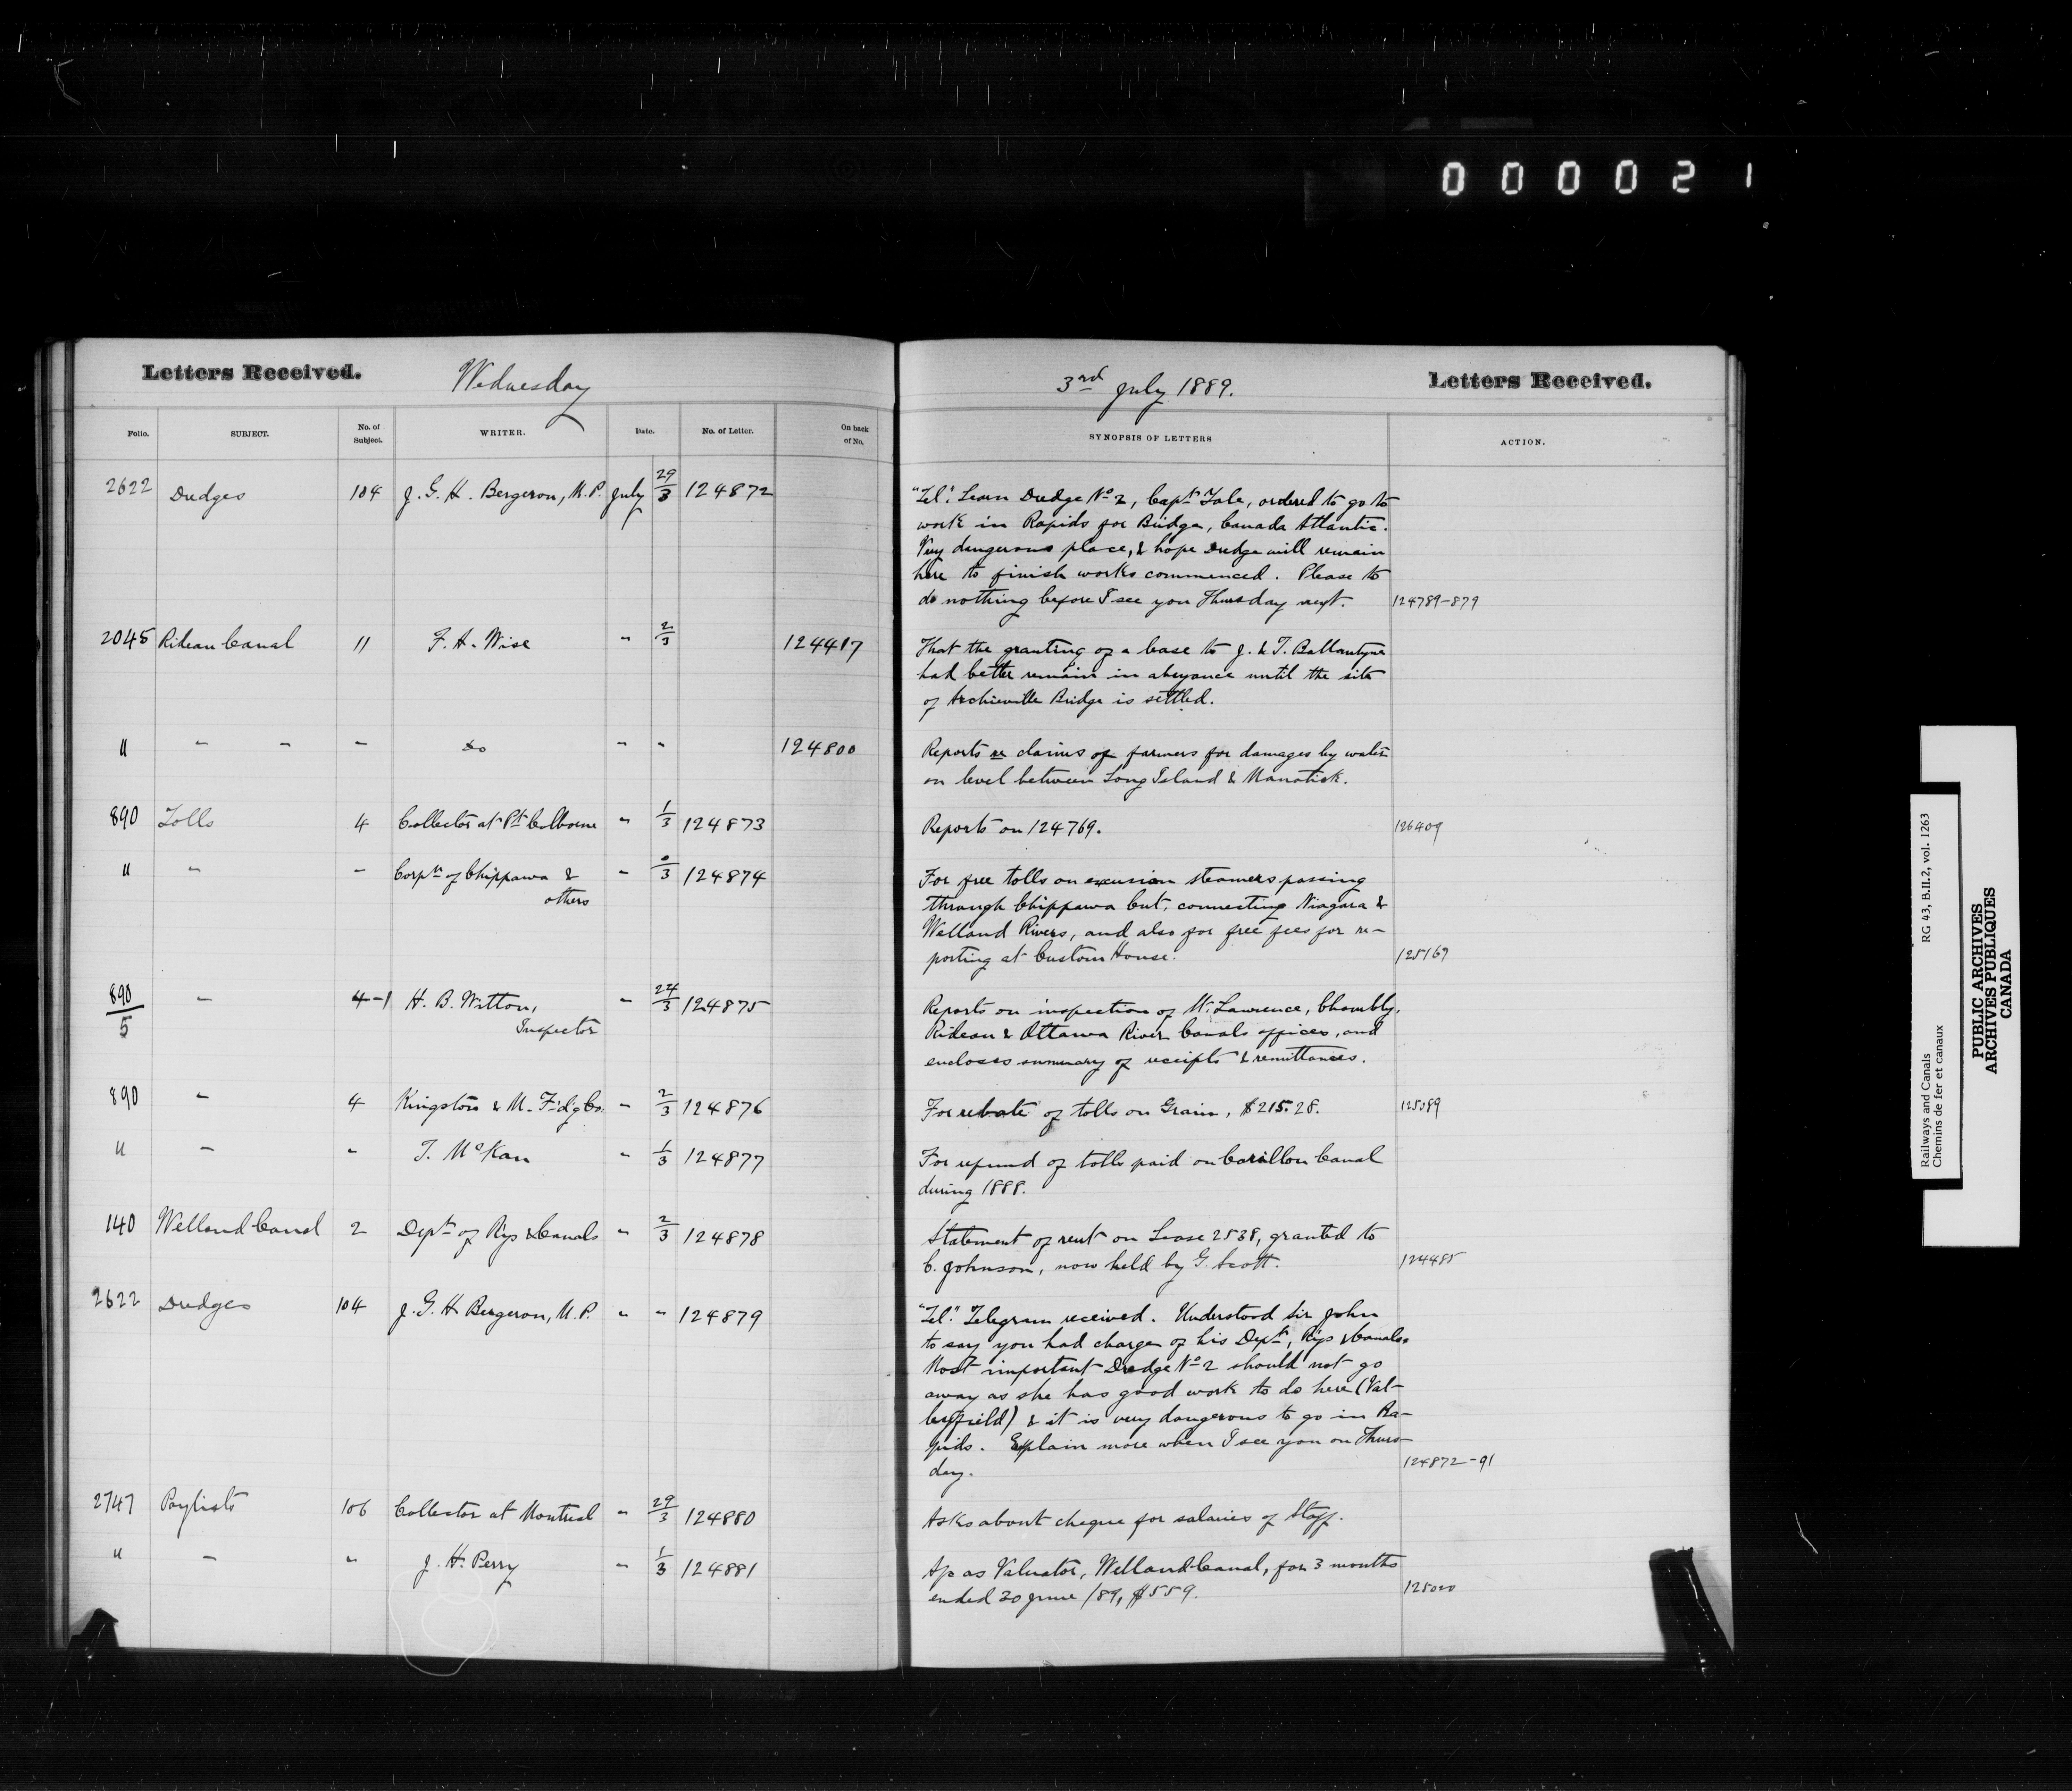 0 0 0 0 2 1
Letters Received. Wednesday
3rd July 1889. Letters Received.
Folio. SUBJECT. No. of Subject. WRITER. Date. No. of Letter. On back of No.
SYNOPSIS OF LETTERS ACTION.
2622 Dredges 104 J. G. H. Bergeron, M.P. July 29/3 124872
"Tel". Learn Dredge No 2, Capt Yale, ordered to go to
work in Rapids for Bridge, Canada Atlantic.
Very dangerous place, & hope Dredge will remain
here to finish works commenced. Please to
do nothing before I see you Thursday next. 124789-879
2045 Rideau Canal 11 F. A. Wise " 2/3 124417
That the granting of a lease to J. & T. Ballantyne
had better remain in abeyance until the site
of Archieville Bridge is settled.
" " " " Do " " 124800
Reports re claims of farmers for damages by water
on level between Long Island & Manotick.
890 Tolls 4 Collector at Pt Colborne " 1/3 124873
Reports on 124769. 126409
" " " Corpn of Chippawa & " 0/3 124874
others
For free tolls on excursion steamers passing
through Chippawa Cut, connecting Niagara &
Welland Rivers, and also for free fees for re-
porting at Custom House. 125169
890/5 " 4-1 H. B. Witton, " 24/3 124875
Inspector
Reports on inspection of St. Lawrence, Chambly,
Rideau & Ottawa River Canals offices, and
encloses summary of receipts & remittances.
890 " 4 Kingston & M. F'd'g Co. " 2/3 124876
For rebate of tolls on Grain, $215.28. 125089
" " " T. McKan " 1/3 124877
For refund of tolls paid on Carillon Canal
during 1888.
140 Welland Canal 2 Dept of Rys & Canals " 2/3 124878
Statement of rent on Lease 2538, granted to
C. Johnson, now held by G. Scott. 124485
2622 Dredges 104 J. G. H. Bergeron, M.P. " " 124879
"Tel". Telegram received. Understood Sir John
to say you had charge of his Dept, Rys & Canals.
Most important Dredge No 2 should not go
away as she has good work to do here (Val-
leyfield) & it is very dangerous to go in Ra-
pids. Explain more when I see you on Thurs-
day. 124872-91
2747 Paylists 106 Collector at Montreal " 29/3 124880
Asks about cheque for salaries of Staff.
" " " J. H. Perry " 1/3 124881
A/c as Valuator, Welland Canal, for 3 months
ended 30 June /89, $559. 125020
RG 43, B.II.2, vol. 1263
Railways and Canals
Chemins de fer et canaux
PUBLIC ARCHIVES
ARCHIVES PUBLIQUES
CANADA